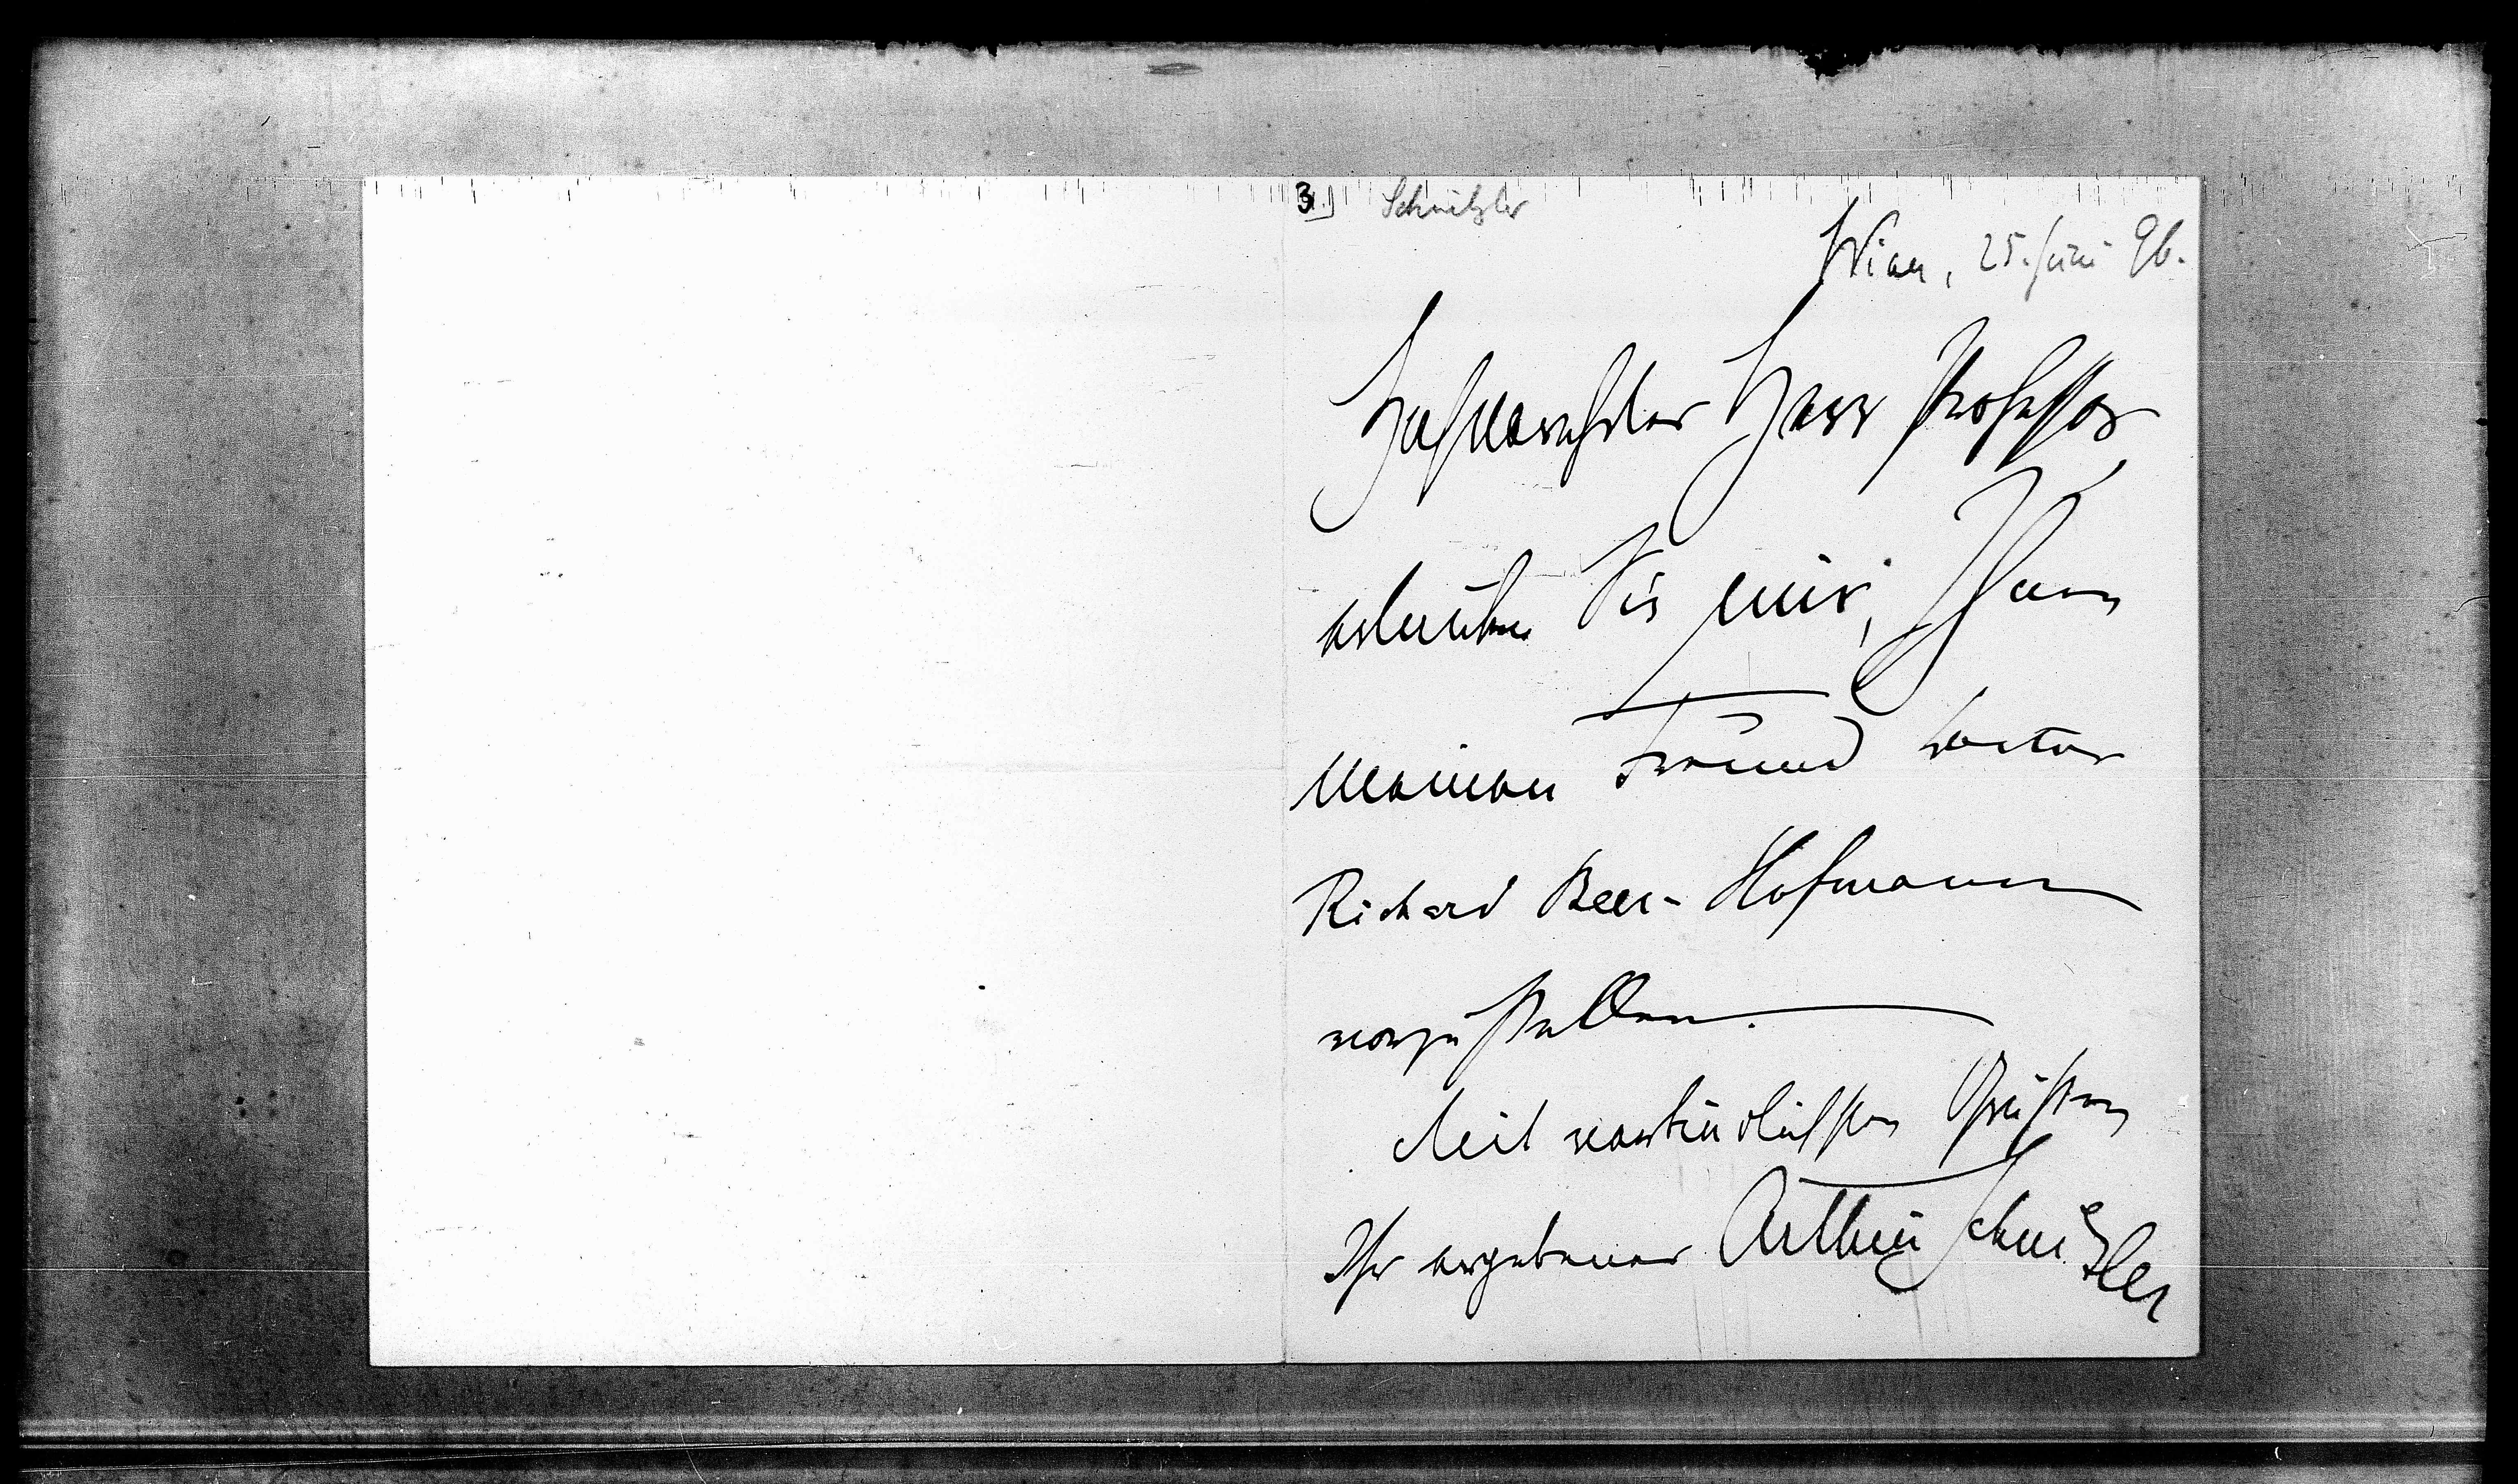 3 Schnitzler
Wien, 25. Juni 96.
Hochverehrter Herr Professor,
erlauben Sie mir, Ihnen
meinen Freund Doctor
Richard Beer-Hofmann
vorzustellen.
Mit verbindlichsten Grüßen
Ihr ergebener Arthur Schnitzler